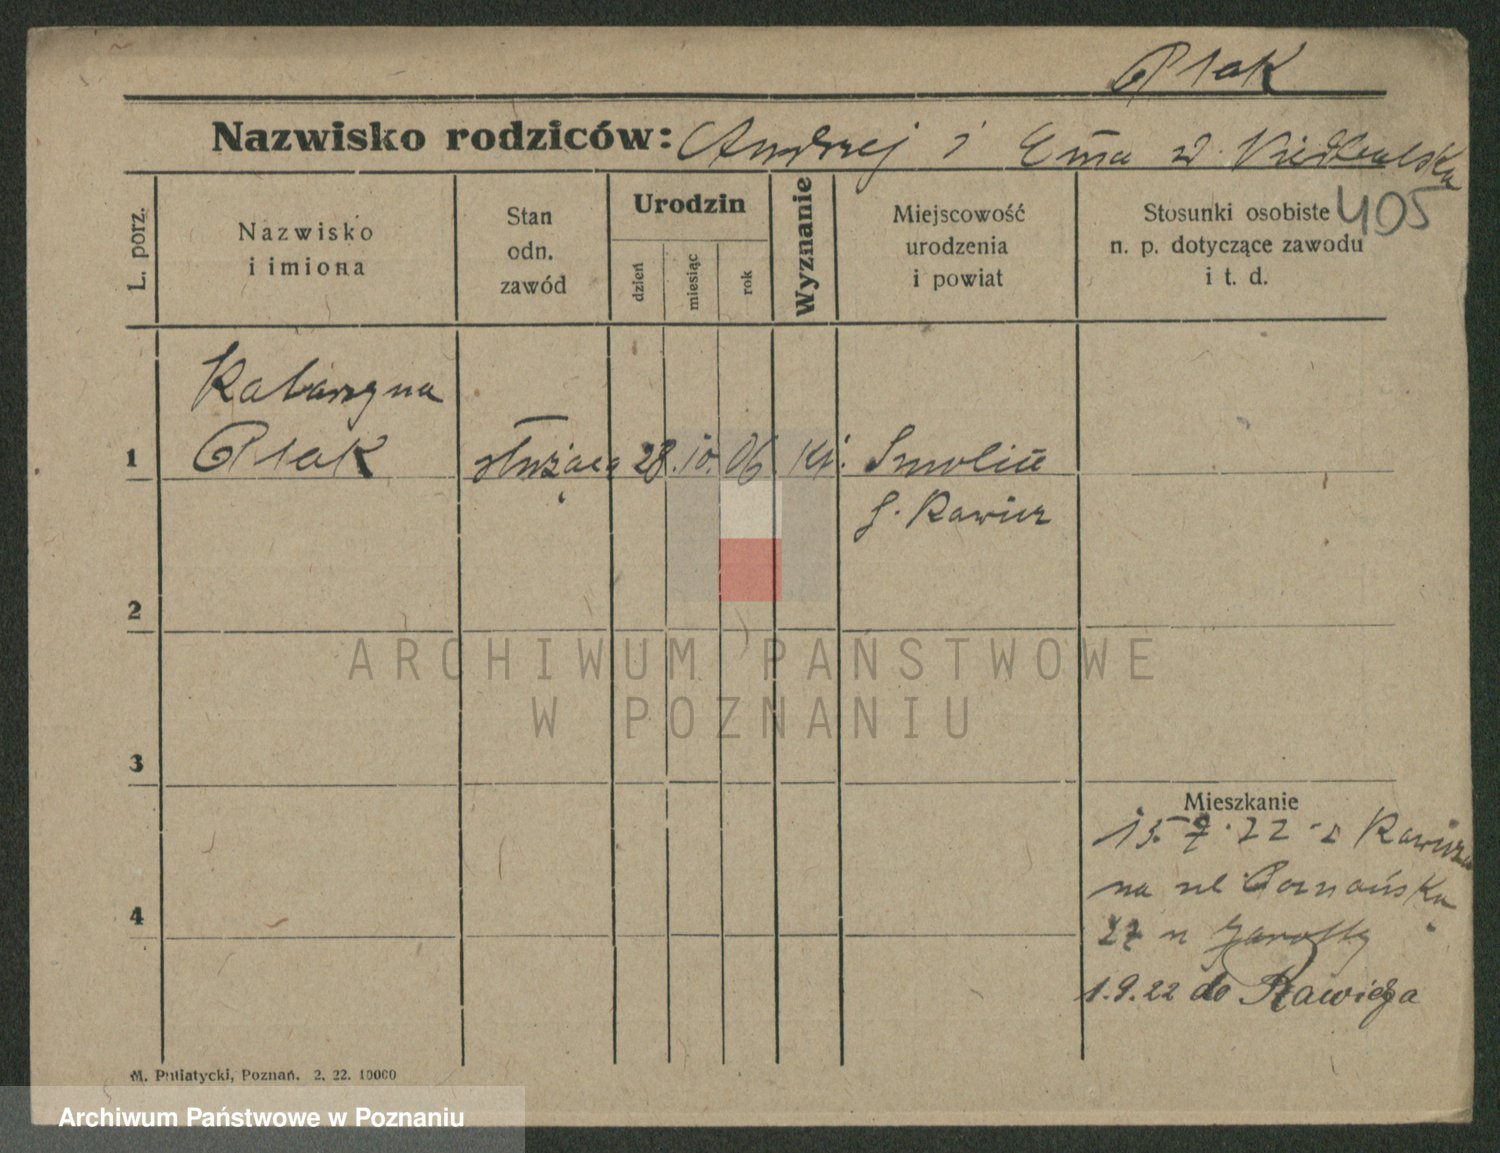 Ptak
Nazwisko rodziców: Andrzej i Ema
405
L. porz.
Nazwisko
i imiona
Stan
odn.
zawód
Urodzin
dzień
miesiąc
rok
Wyznanie
Miejscowość
urodzenia
i powiat
Stosunki osobiste
n. p. dotyczące zawodu
i t. d.
Katarzyna
1 Ptak służąca 28. 10. 06 kt. Smolice
p. Rawicz
2
3
4
Mieszkanie
15. 7. 22 z Rawicza
na ul Poznańska
27 u
1.9.22 do Rawicza
M. Putiatycki, Poznań. 2. 22. 10000
ARCHIWUM PAŃSTWOWE
W POZNANIU
Archiwum Państwowe w Poznaniu